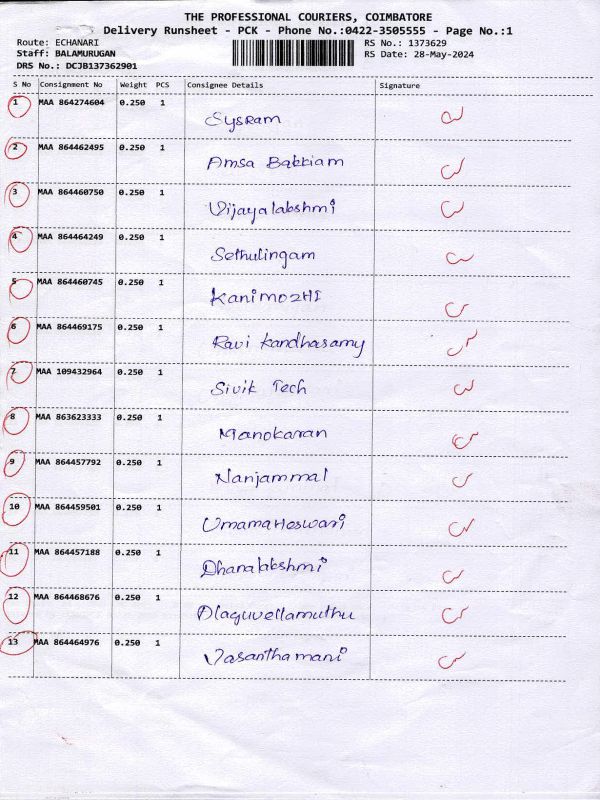 THE PROFESSIONAL COURIERS, COIMBATORE
Delivery Runsheet - PCK - Phone No.:0422-3505555 - Page No.:1
Route: ECHANARI RS No.: 1373629
Staff: BALAMURUGAN RS Date: 28-May-2024
DRS No.: DCJB137362901
S No Consignment No Weight PCS Consignee Details Signature
1 MAA 864274604 0.250 1 Sysram
2 MAA 864462495 0.250 1 Amsa Bakkiam
3 MAA 864460750 0.250 1 Vijayalakshmi
4 MAA 864464249 0.250 1 Sethulingam
5 MAA 864460745 0.250 1 KanimozHI
6 MAA 864469175 0.250 1 Ravi Kandhasamy
7 MAA 109432964 0.250 1 Sivik Tech
8 MAA 863623333 0.250 1 Manokaran
9 MAA 864457792 0.250 1 Nanjammal
10 MAA 864459501 0.250 1 UmamaHeswari
11 MAA 864457188 0.250 1 Dhanalakshmi
12 MAA 864468676 0.250 1 Alaguvellamuthu
13 MAA 864464976 0.250 1 Vasanthamani